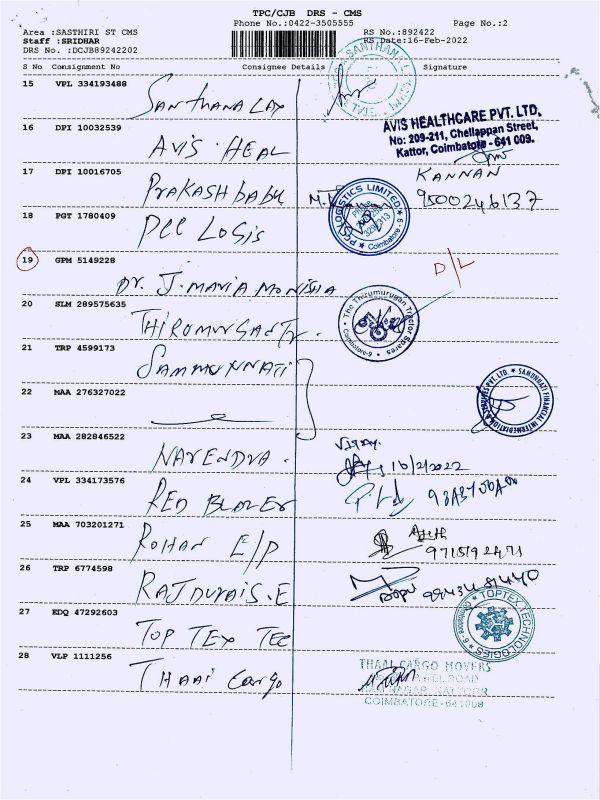 TPC/CJB DRS - CMS
Phone No.:0422-3505555 Page No.:2
Area :SASTHIRI ST CMS RS No.:892422
Staff :SRIDHAR RS Date:16-Feb-2022
DRS No. :DCJB89242202
S No Consignment No Consignee Details Signature
15 VPL 334193488
SANTHANA LAX
16 DPI 10032539
AVIS HEALTHCARE PVT. LTD,
No: 209-211, Chellappan Street,
Kattor, Coimbatore - 641 009.
AVIS . HEAL
17 DPI 10016705 KANNAN
Prakash babu 9500246137
18 PGT 1780409
PCC LOGIS
PCC LOGISTICS LIMITED
Coimbatore-6
19 GPM 5149228
D/L
Dr. J. MARIA MONISHA
20 SLM 289575635
THIROMURGAN Tr.
The Thirumurugan Tractor Spares
Coimbatore-6
21 TRP 4599173
SAMMUNNATI
22 MAA 276327022
SAMUNNATI FINANCIAL INTERMEDIATION & SERVICES PVT. LTD.
23 MAA 282846522
NARENDRA . 16/2/2022
24 VPL 334173576
RED BLOVER
25 MAA 703201271
ROHAN E/P
26 TRP 6774598
RAJDURAIS.E
27 EDQ 47292603
TOPTEX TECHNOLOGIES
Coimbatore-6
TOP TEX TEC
28 VLP 1111256
THAAI CARGO MOVERS
THAAI Cargo
COIMBATORE-641008